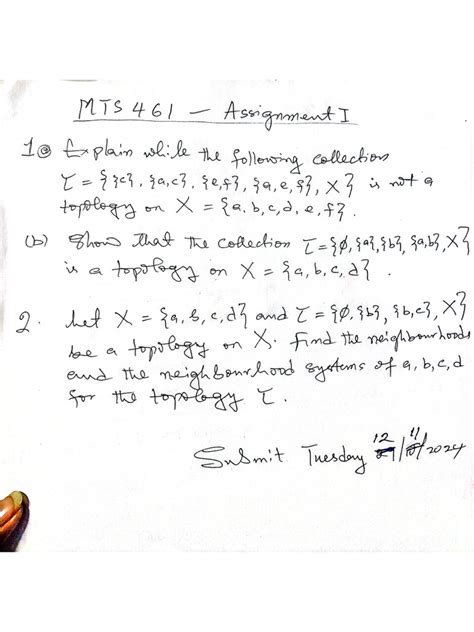 MTS 461 – Assignment I
1@ Explain while the following collection
τ = {{c}, {a,c}, {e,f}, {a,e,f}, X} is not a
topology on X = {a,b,c,d,e,f}.
(b) Show that the collection τ={∅,{a},{b},{a,b},X}
is a topology on X = {a,b,c,d}.
2. Let X = {a,b,c,d} and τ = {∅,{b},{b,c},X}
be a topology on X. Find the neighbourhoods
and the neighbourhood systems of a,b,c,d
for the topology τ.
Submit Tuesday 12/11/2024